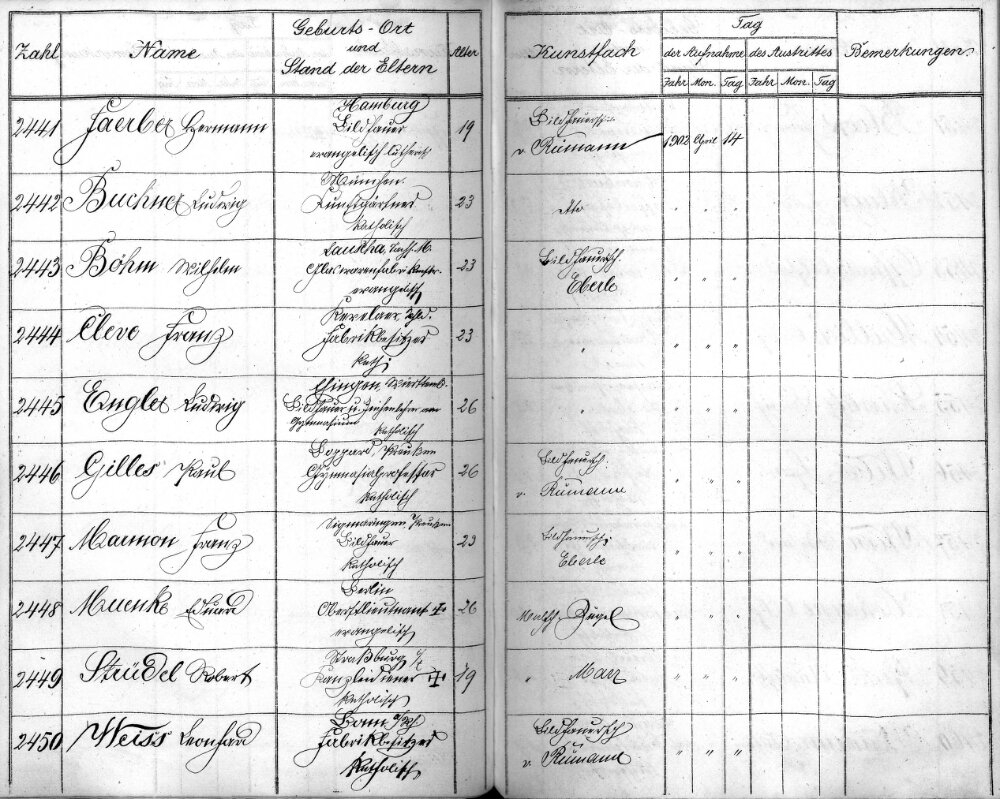 Zahl Name Geburts-Ort und Stand der Eltern Alter Kunstfach Tag der Aufnahme des Austrittes Bemerkungen.
Jahr Mon. Tag Jahr Mon. Tag
2441 Faerber Hermann Hamburg 19 Bildhauersch. 1902 April 14
Bildhauer v. Rümann
evangelisch lutherisch
2442 Buchner Ludwig München. 23 dto " " "
Kunstgärtner
katholisch
2443 Böhm Wilhelm 23 Bildhauersch. " " "
Eberle
evangelisch
2444 Cleve Franz Kevelaer, 23 " " " "
Fabrikbesitzer
kath.
2445 Engler Ludwig Ehingen, Württemb. 26 " " " "
Bildhauer u. Zeichenlehrer am
Gymnasium katholisch
2446 Gilles Paul Boppard, Preußen 26 Bildhauersch. " " "
Gymnasialprofessor v. Rümann
katholisch
2447 Marmon Franz Sigmaringen, Preußen 23 Bildhauersch. " " "
Bildhauer Eberle
katholisch
2448 Muenke Eduard Berlin 26 Malsch. Zügel " " "
Oberstlieutenant +
evangelisch
2449 Strüdel Robert Straßburg i/E 19 " Marr " " "
Kanzleidiener +
katholisch
2450 Weiss Leonhard Bonn a/Rh. 23 Bildhauersch " " "
Fabrikbesitzer v. Rümann
katholisch